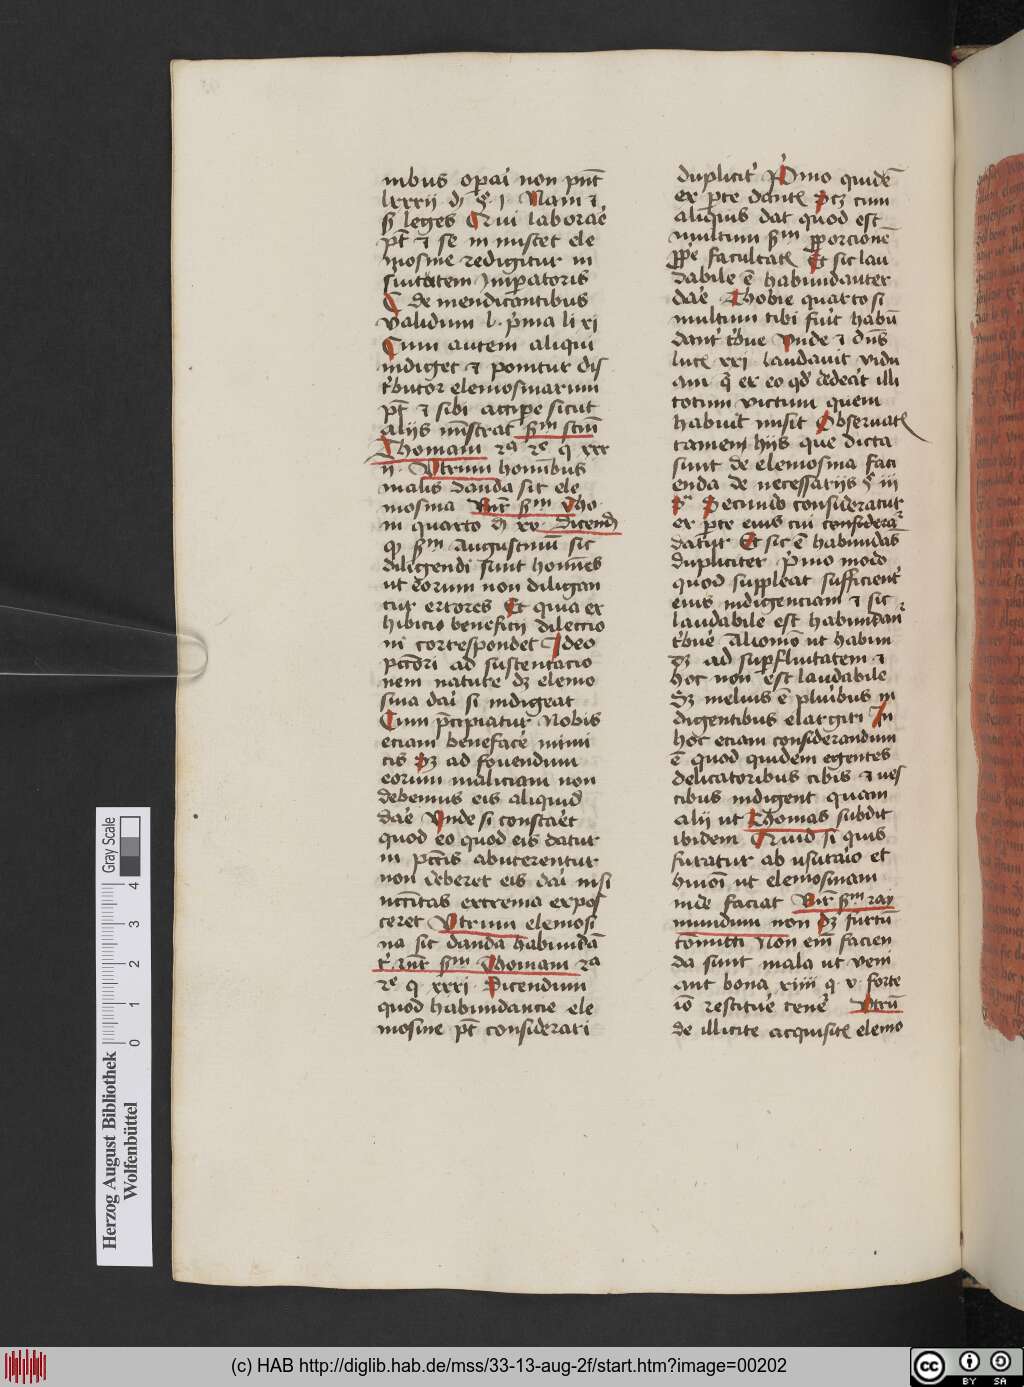 nibus oꝑari non pn̄t
lxxxij di § j Nam ⁊
ẜm leges Qui laborare
pt̄ ⁊ se in miscet ele
mosine redigitur in
siuitatem Jmperatoris
C de mendicantibus
validum l· pͥma li xi
Cum autem aliqui
indiget ⁊ ponitur dis
tͥbutor elemosinarum
pt̄ ⁊ sibi accipe sicut
alijs mīstrat ẜm sctū
Thomam 2ª 2e q xxx
ij Vtrum hominbus
malis danda sit ele
mosina Rn̄t ẜm Tho
in quarto di xv Dicendū
qđ ẜm Augustinū sic
diligendi sunt homīes
ut eorum non diligan
tur errores Et quia ex
hibicio beneficii dileccio
ni correspondet Jdeo
pctōri ad sustentacio
nem nature dꝫ elemo
sina dari si indigeat
Cum p̄cipiatur Nobis
eciam beneface inimi
cis Sꝫ ad fouendum
eorum maliciam non
debemus eis aliquid
dare Vnde si constaret
quod eo quod eis datur
in pctīs abuterentur
non deberet eis dari nisi
nctitas extrema expos
ceret Vtrum elemosi
na sit danda habundā
tͥ Rn̄t ẜm Thomam 2ª
2e q xxxi Dicendum
quod habundancie ele
mosine pt̄ considerari
duplicitͥ Pͥmo quidē
ex pte dantꝭ Sꝫ cum
aliquis dat quod est
multum ẜm ꝓporcionē
ꝓpe facultatꝭ Et sic lau
dabile ē habundanter
dare Thobie quarto si
multum tibi fuit habū
dantͥ tͥbue Vnde ⁊ dn̄s
lucꝭ xxi laudauit vidu
am q̄ ex eo qđ dedeāt illi
totum victum quem
habuit misit Obseruatꝭ
tamen hijs que dicta
sunt de elemosina faci
enda de necessarijs § iij
Secundo consideratur
ex pte eius cui considerꝛ
datur Et sic ē habundās
dupliciter Pͥmo modo
quod suppleat sufficientͥ
eius indigenciam ⁊ sic
laudabile est habundanꝛ
tͥbue Aliomō ut habun
dꝫ ad supfluitatem ⁊
hoc non est laudabile
Sꝫ melius ē pluibus in
digentibus elargiri In
hoc eciam considerandum
ē quod quidem egentes
delicatoribus cibis ⁊ ves
tibus indigent quam
alij ut Thomas subdit
ibidem Quid si quis
furatur ab usuraio et
huiōi ut elemosinam
inde faciat Rn̄t ẜm ray
mundum non dꝫ furtū
comitti Non eīn facien
da sunt mala ut veni
ant bona xiiij q v forte
iō restitue tenē Vtrū
de illicite acquisitꝭ elemo
Herzog August Bibliothek
Wolfenbüttel
0 1 2 3 4
Gray Scale
(c) HAB http://diglib.hab.de/mss/33-13-aug-2f/start.htm?image=00202
cc BY SA